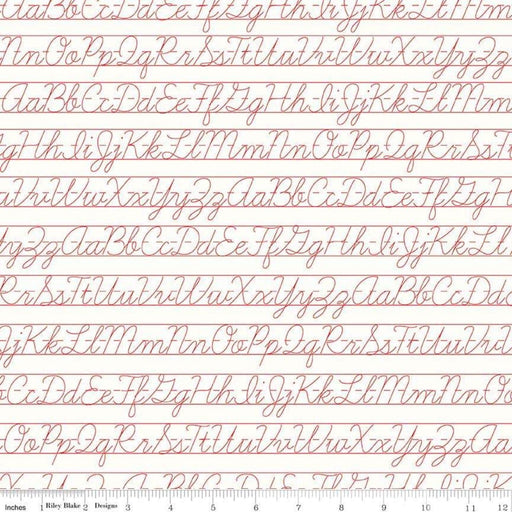 AaBbCcDdEeFfGgHhIiJjKkLlMm
NnOoPpQqRrSsTtUuVvWwXxYyZz
AaBbCcDdEeFfGgHhIiJjKkLlMm
gHhIiJjKkLlMmNnOoPpQqRrSsT
uVvWwXxYyZzAaBbCcDdEeFfGg
YyZzAaBbCcDdEeFfGgHhIiJjKkLl
RrSsTtUuVvWwXxYyZzAaBbCc
JjKkLlMmNnOoPpQqRrSsTtUuVv
CcDdEeFfGgHhIiJjKkLlMmNnOo
OoPpQqRrSsTtUuVvWwXxYyZzAa
Inches 1 Riley Blake 2 Designs 3 4 5 6 7 8 9 10 11 12